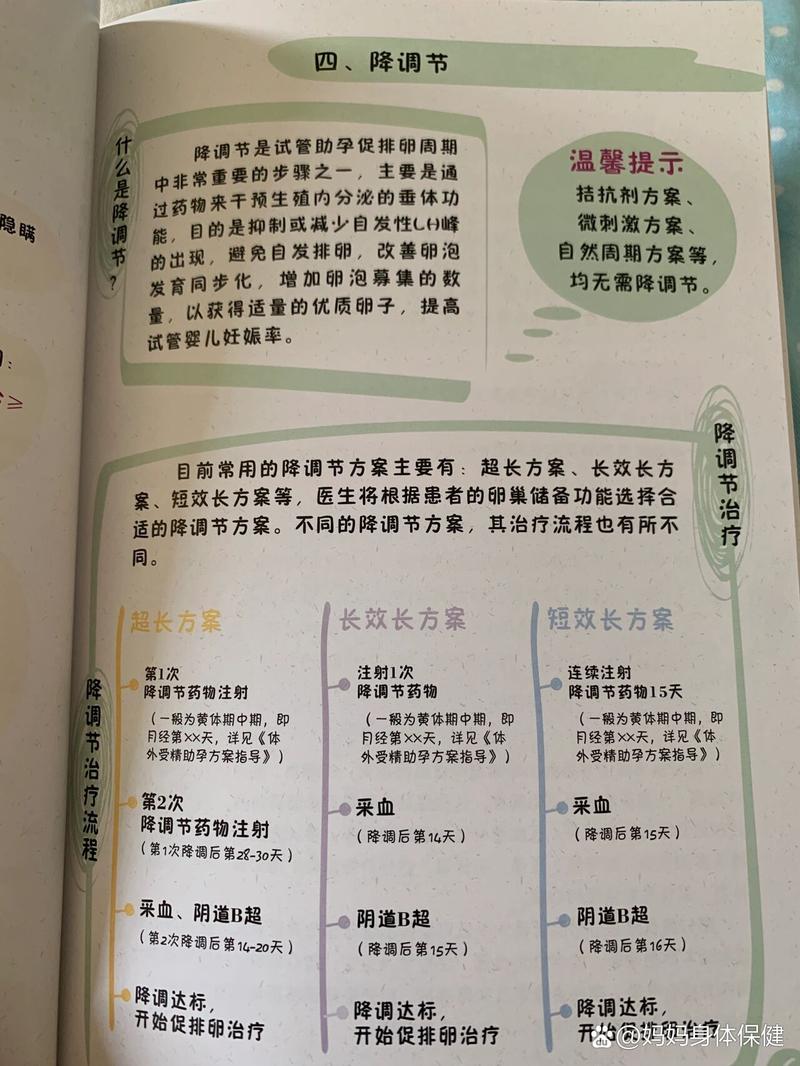 四、降调节
什么是降调节？
降调节是试管助孕促排卵周期
中非常重要的步骤之一，主要是通
过药物来干预生殖内分泌的垂体功
能，目的是抑制或减少自发性LH峰
的出现，避免自发排卵，改善卵泡
发育同步化，增加卵泡募集的数
量，以获得适量的优质卵子，提高
试管婴儿妊娠率。
温馨提示
拮抗剂方案、
微刺激方案、
自然周期方案等，
均无需降调节。
隐瞒
：
≥
降调节治疗
目前常用的降调节方案主要有：超长方案、长效长方
案、短效长方案等，医生将根据患者的卵巢储备功能选择合
适的降调节方案。不同的降调节方案，其治疗流程也有所不
同。
降调节治疗流程
超长方案
第1次
降调节药物注射
（一般为黄体期中期，即
月经第××天，详见《体
外受精助孕方案指导》）
第2次
降调节药物注射
（第1次降调后第28-30天）
采血、阴道B超
（第2次降调后第14-20天）
降调达标，
开始促排卵治疗
长效长方案
注射1次
降调节药物
（一般为黄体期中期，即
月经第××天，详见《体
外受精助孕方案指导》）
采血
（降调后第14天）
阴道B超
（降调后第15天）
降调达标，
开始促排卵治疗
短效长方案
连续注射
降调节药物15天
（一般为黄体期中期，即
月经第××天，详见《体
外受精助孕方案指导》）
采血
（降调后第15天）
阴道B超
（降调后第16天）
降调达标，
开始促排卵治疗
@妈妈身体保健